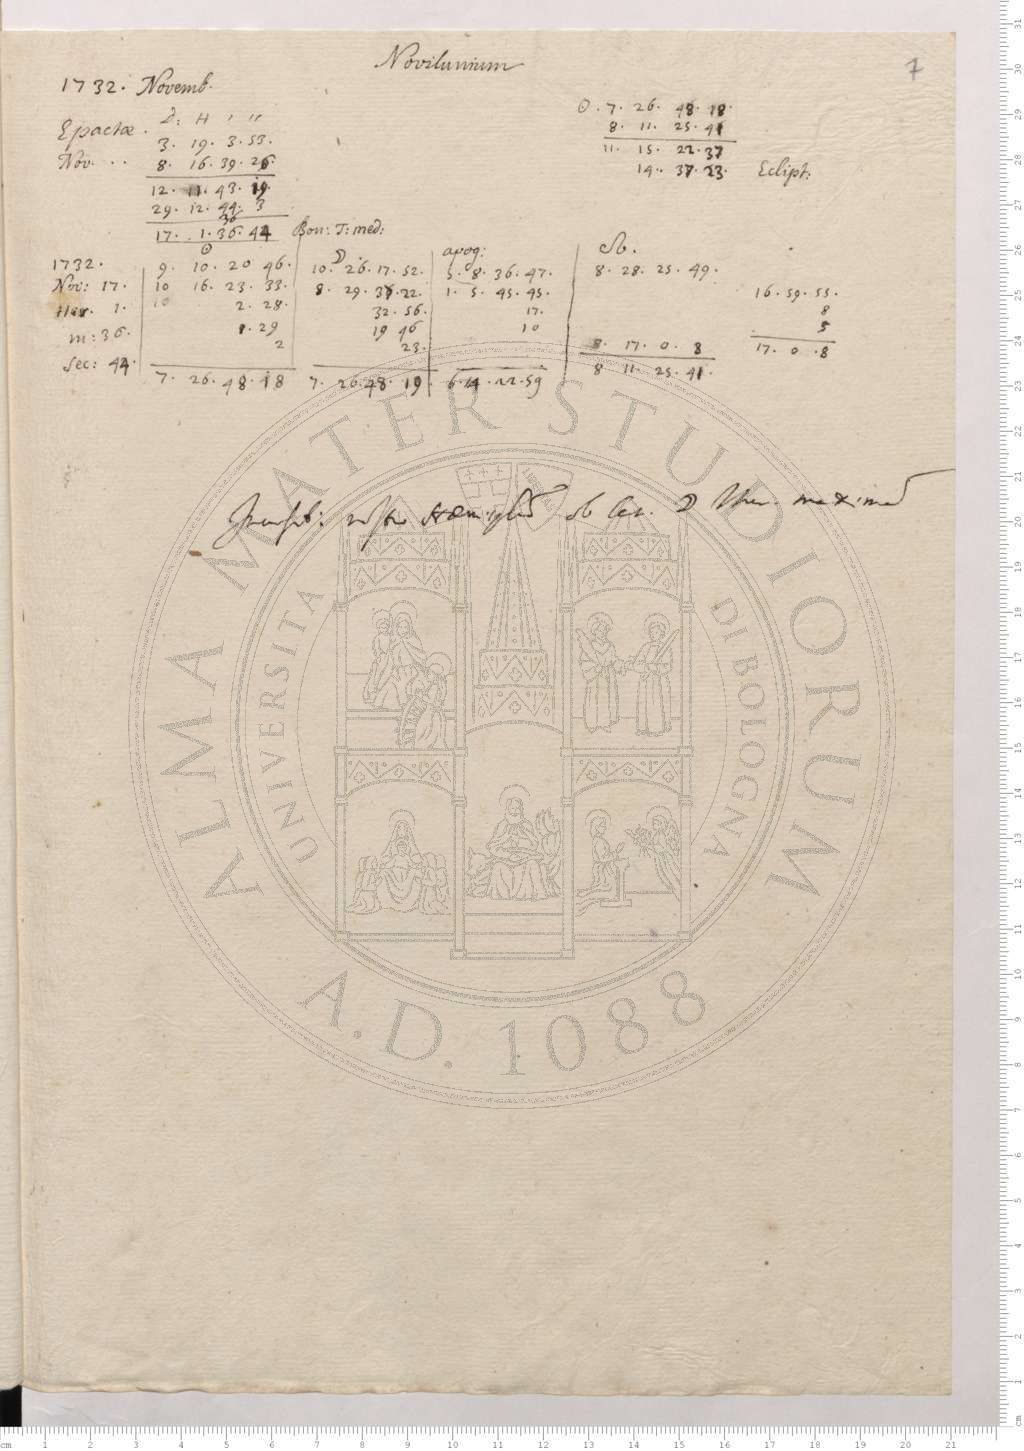 Novilunium
7
1732. Novemb.
D: H ' ''
Epactae . 3. 19. 3. 53.
Nov. . . 8. 16. 39. 26.
12. 11. 43. 19.
29. 12. 44. 3
36
17. 1. 36. 44 Bon: T: med:
☉ . 7. 26. 48. 18.
8. 11. 25. 41
11. 15. 22. 37
14. 37. 23. Eclipt:
☉ ☽ apog: ☊.
1732. 9. 10. 20 46. 10. 26. 17. 52. 5. 8. 36. 47. 8. 28. 25. 49.
Nov: 17. 10 16. 23. 33. 8. 29. 37. 22. 1. 5. 45. 45. 16. 59. 55.
Hor. 1. 2. 28. 32. 56. 17. 8
m: 36. 1. 29 19 46 10 5
2 23. 8. 17. 0. 8 17. 0. 8
Sec: 44. 7. 26. 48. 18 7. 26. 48. 19 6. 14. 22. 59 8 11. 25. 41.
ob lat. ☽ maxima
ALMA MATER STUDIORUM
UNIVERSITA DI BOLOGNA
A.D. 1088